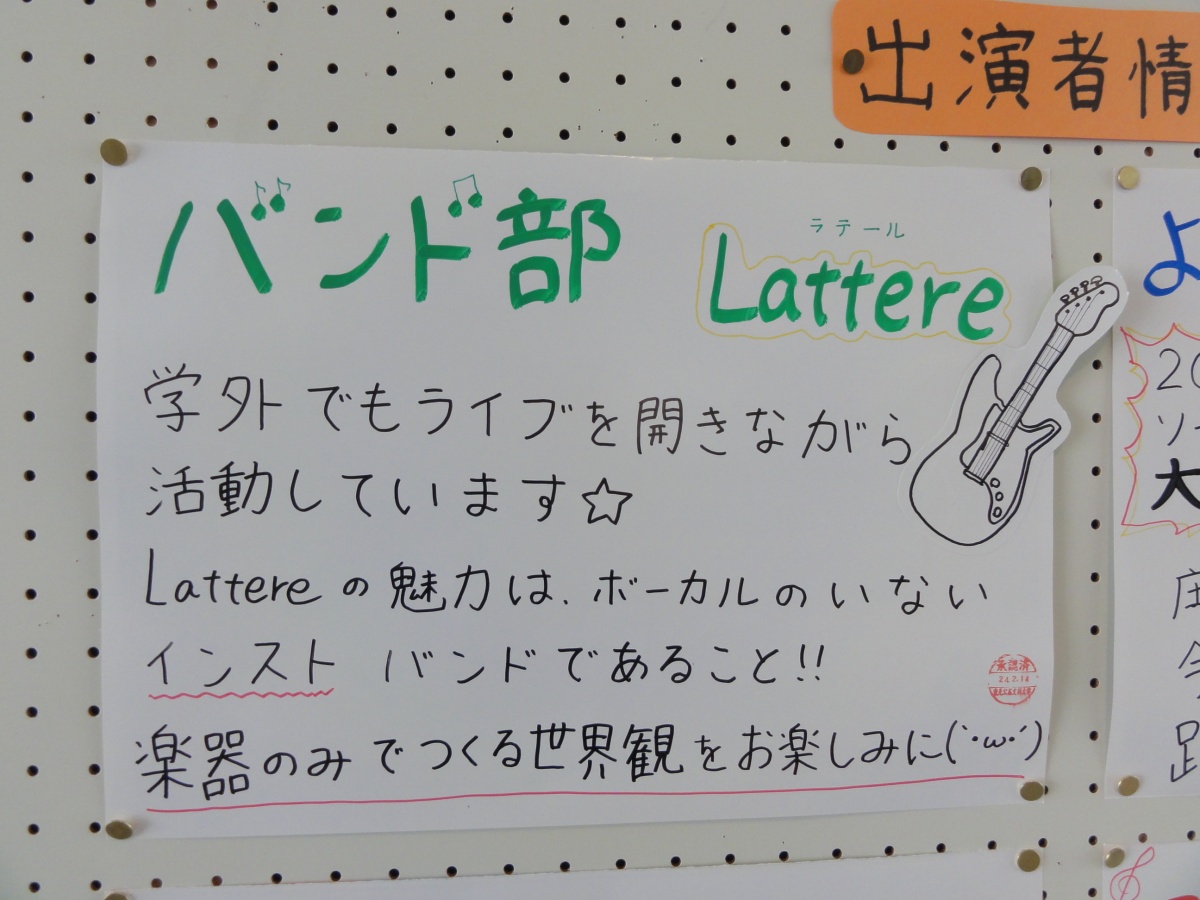 出演者情
バンド部
ラテール
Lattere
学外でもライブを開きながら
活動しています☆
Lattereの魅力は、ボーカルのいない
インスト バンドであること!!
承認済
楽器のみでつくる世界観をお楽しみに(｀･ω･´)
よ
20
ソ
大